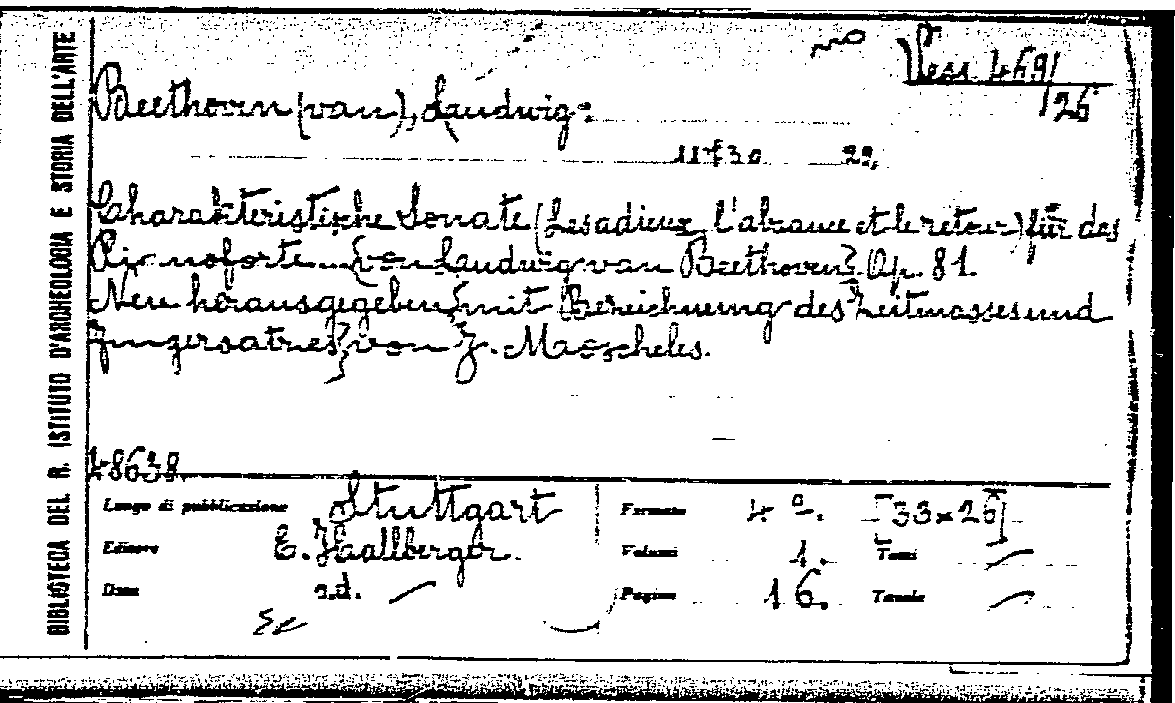 BIBLIOTECA DEL R. ISTITUTO D'ARCHEOLOGIA E STORIA DELL'ARTE
Vess. 469/
26
Beethoven (van), Laudwig:
Charakteristische Sonate (Les adieux, l'absance et le retour) für das
Pianoforte... von Laudwig van Beethoven. Op. 81.
Neu herausgegeben mit Bezeichnung des Zeitmasses und
Fingersatzes von J. Moscheles.
48638.
Luogo di pubblicazione Stuttgart Formato 4º. [33×26]
Editore E. Haallberger. Volumi 1. Tomi —
Data s.d. — Pagine 16. Tavole —